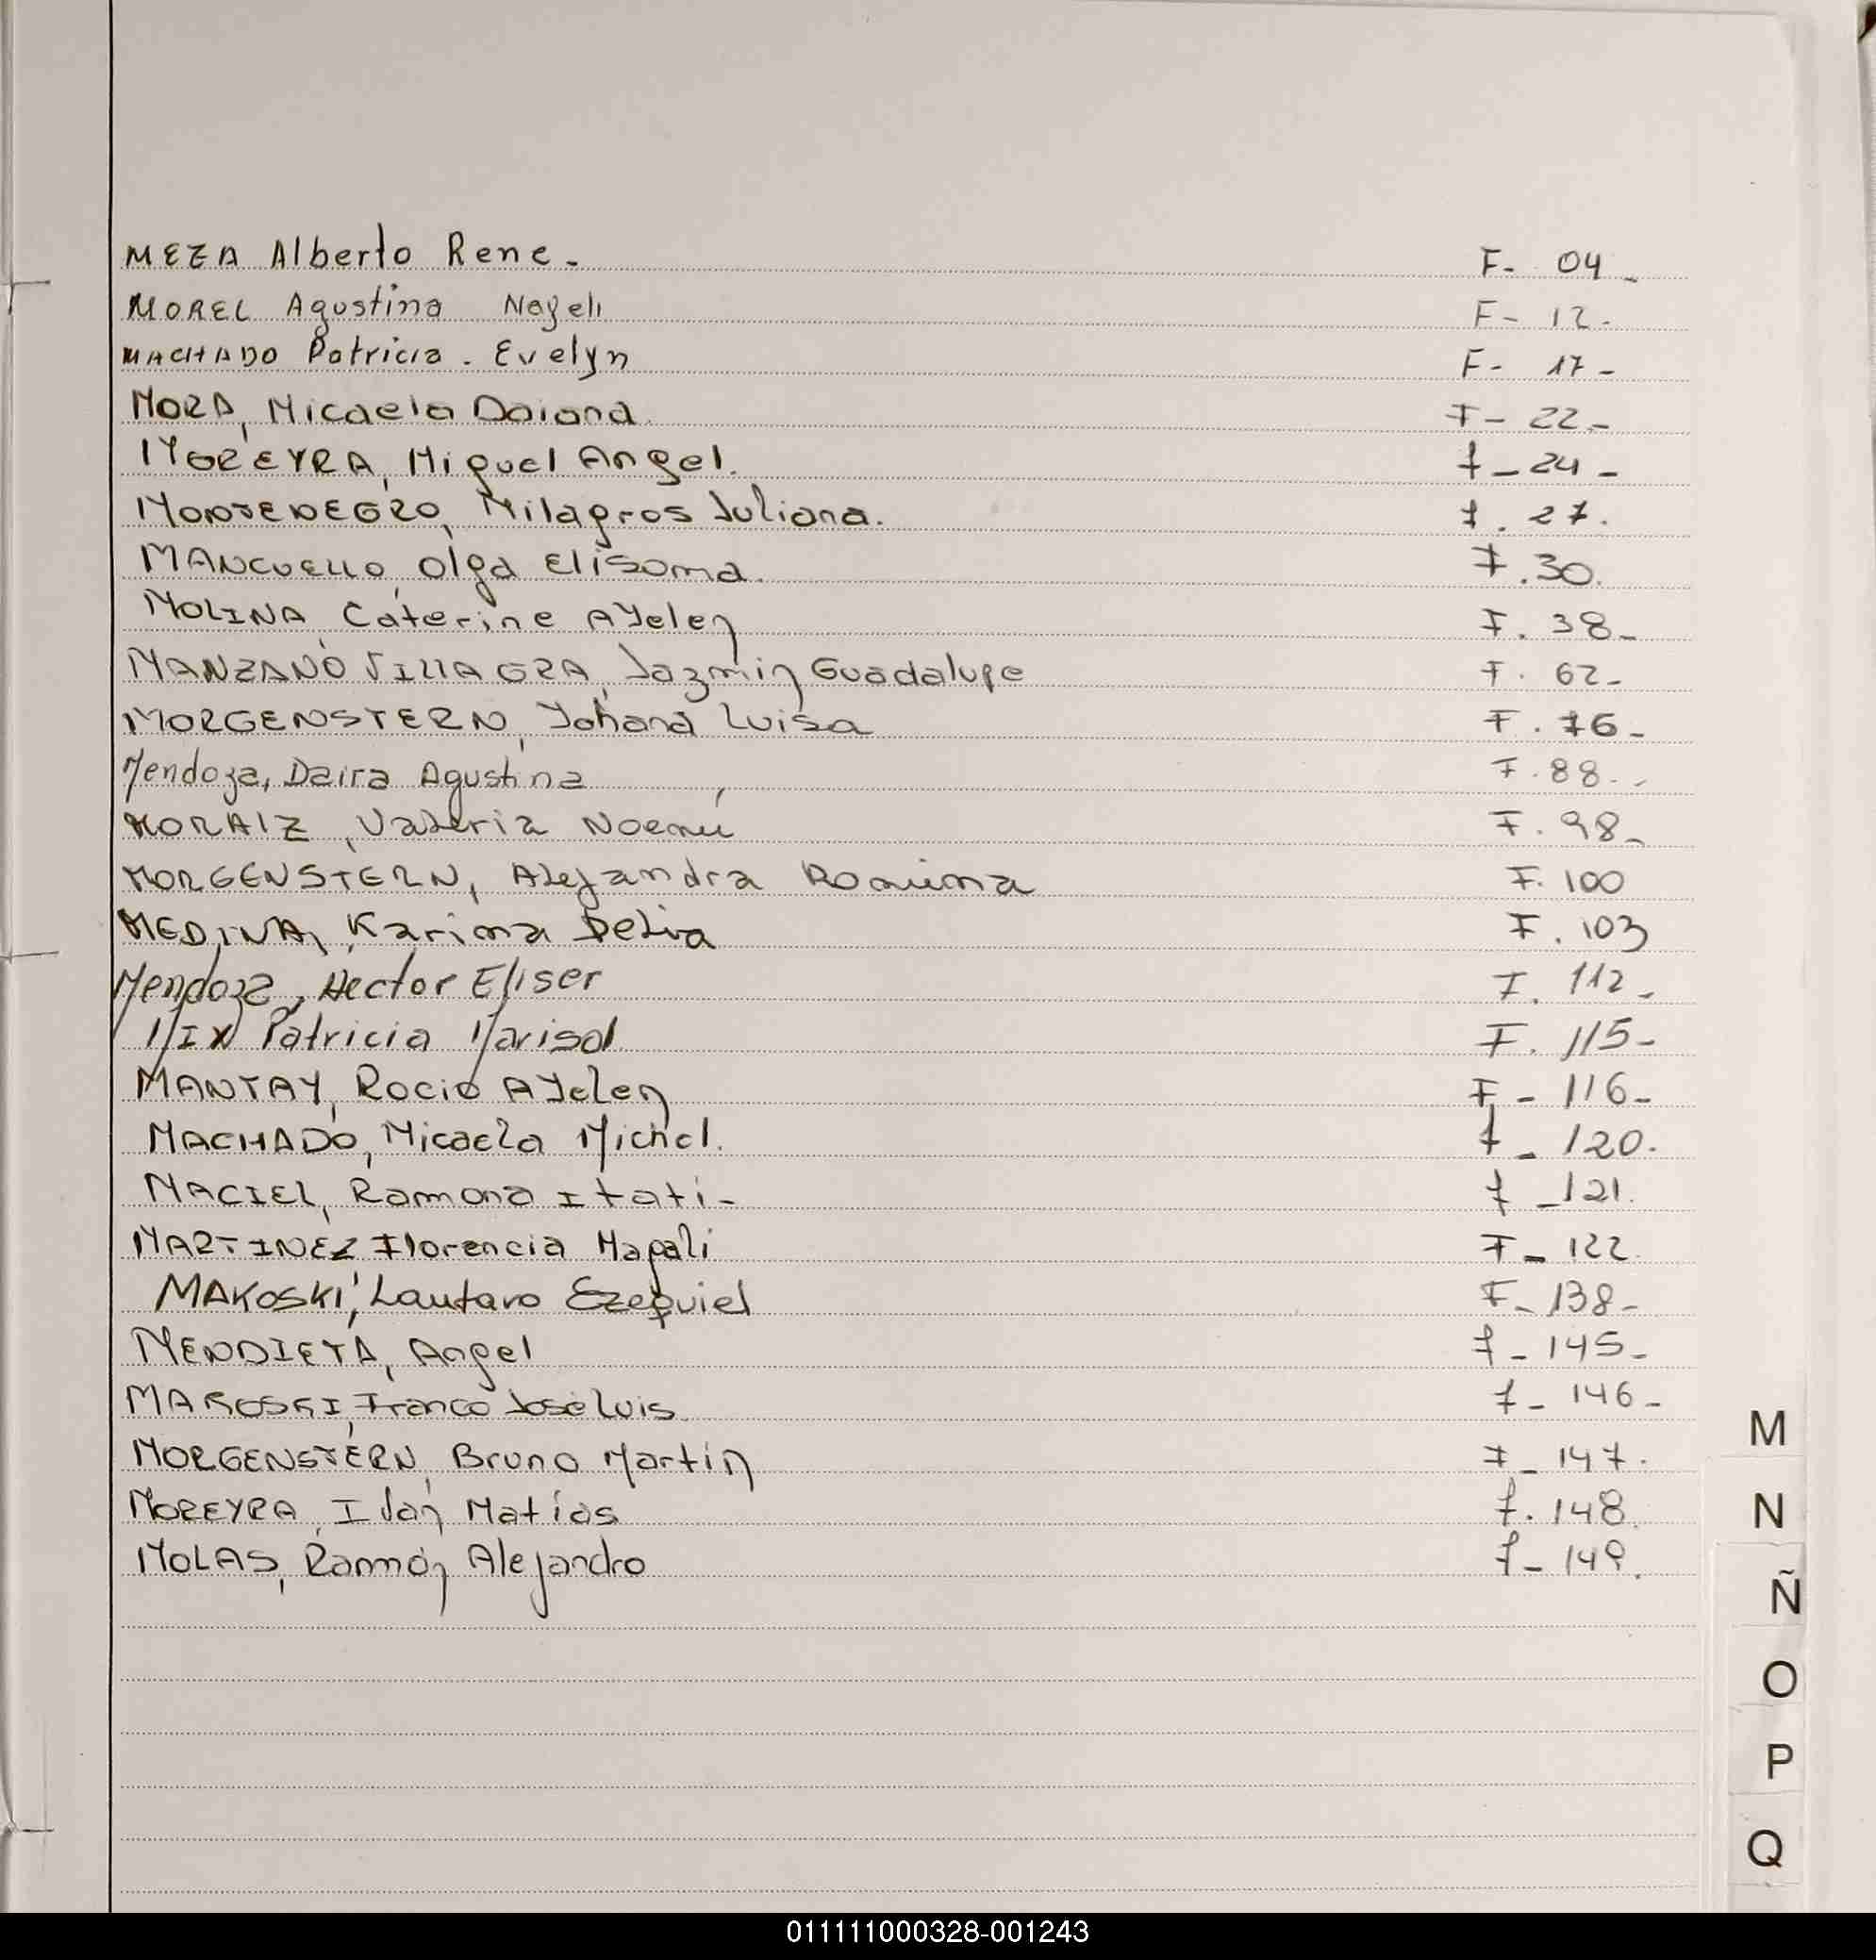 MEZA Alberto Rene - F- 04 -
MOREL Agustina Nayeli F- 12 -
MACHADO Patricia - Evelyn F- 17 -
MORA, Micaela Daiana. F - 22 -
MOREYRA, Miguel Angel. F - 24 -
MONTENEGRO, Milagros Juliana. F. 27.
MANCUELLO, Olga Elisoma. F. 30.
MOLINA, Caterine AYelen F. 38 -
MANZANO VILLAGRA, Jazmin Guadalupe F. 62 -
MORGENSTERN, Yohana Luisa F. 76 -
Mendoza, Daira Agustina F. 88. -
MORAIZ, Valeria Noemí F. 98 -
MORGENSTERN, Alejandra Romina F. 100
MEDINA, Karina Delia F. 103
Mendoza, Hector Eliser F. 112 -
MIX Patricia Marisol F. 115 -
MANTAY, Rocio AYelen F - 116 -
MACHADO, Micaela Michel. F - 120.
MACIEL, Ramona Itati - F - 121.
MARTINEZ Florencia Magali F - 122.
MAKOSKI, Lautaro Ezequiel F - 138 -
MENDIETA, Angel F - 145 -
MAKOSKI, Franco José Luis. F - 146 -
MORGENSTERN, Bruno Martin F - 147.
MOREYRA, Iván Matías F. 148.
MOLAS, Ramón Alejandro F - 149.
M
N
Ñ
O
P
Q
011111000328-001243